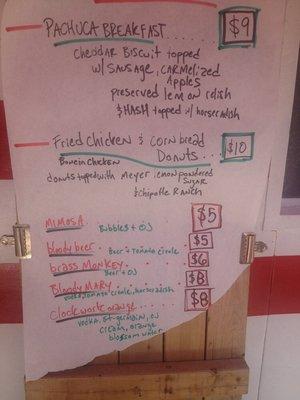 PACHUCA BREAKFAST........ $9
Cheddar Biscuit topped
w/ SAUSAGE, CARMELized
Apples
preserved lemon relish
& HASH topped w/ horseradish
Fried Chicken & Corn bread
Donuts... $10
Bone in Chicken
donuts topped with meyer lemon powdered
sugar
& chipotle RANCH
MIMOSA $5
Bubbles + OJ
bloody beer $5
Beer & Tomato
brass MONKEY $6
Beer + OJ
Bloody MARY $8
vodka, tomato, horseradish
Clockwork orange $8
vodka, St-germain, OJ
cream, orange
blossom water